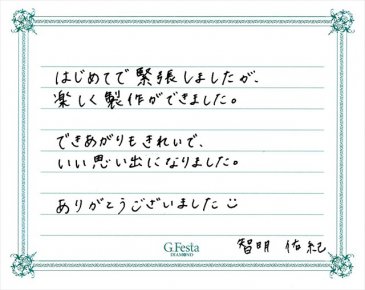 はじめてで緊張しましたが、
楽しく製作ができました。
できあがりもきれいで、
いい思い出になりました。
ありがとうございました
G.Festa
DIAMOND
智明 佑紀